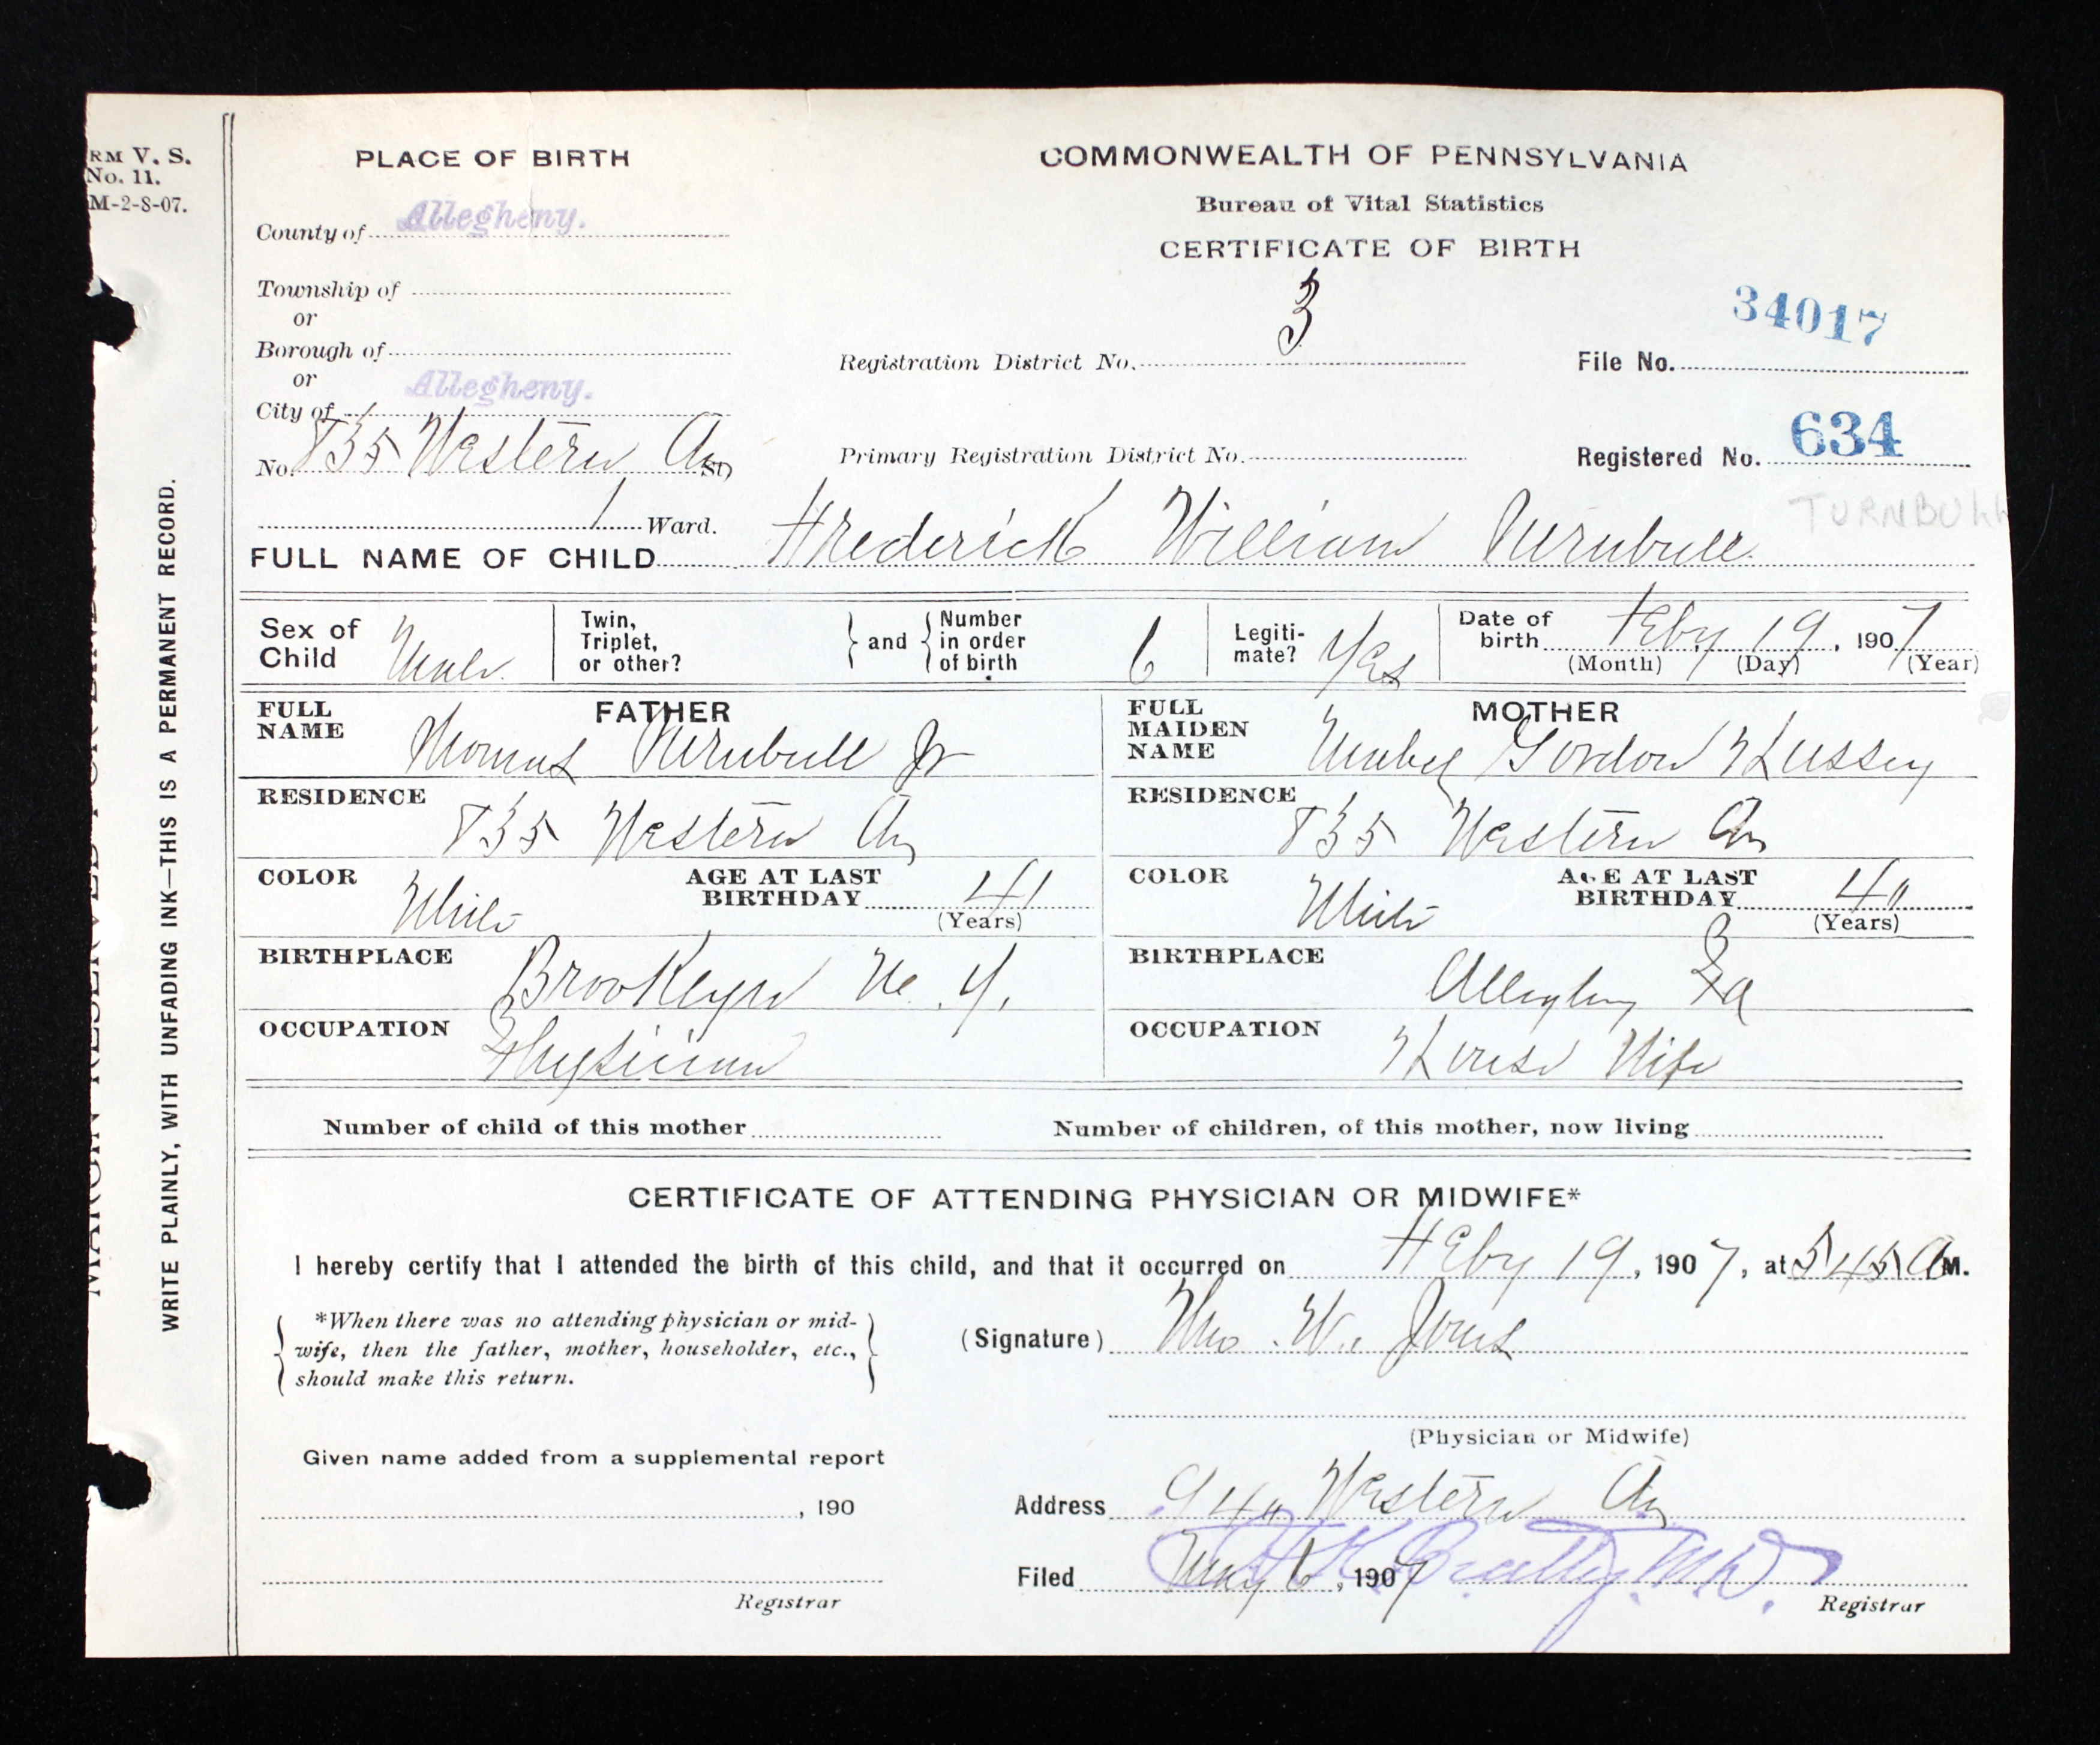 RM V. S.
No. 11.
M-2-8-07.
WRITE PLAINLY, WITH UNFADING INK—THIS IS A PERMANENT RECORD.
PLACE OF BIRTH
County of Allegheny.
Township of
or
Borough of
or
City of Allegheny.
No. 835 Western Av St,
1 Ward.
COMMONWEALTH OF PENNSYLVANIA
Bureau of Vital Statistics
CERTIFICATE OF BIRTH
Registration District No. 3
File No. 34017
Primary Registration District No.
Registered No. 634
TURNBULL
FULL NAME OF CHILD Frederick William Turnbull.
Sex of Child Male
Twin, Triplet, or other?
and Number in order of birth 6
Legiti-mate? Yes
Date of birth Feby 19, 1907
(Month) (Day) (Year)
FATHER
FULL NAME Thomas Turnbull Jr
RESIDENCE 835 Western Av
COLOR White
AGE AT LAST BIRTHDAY 41
(Years)
BIRTHPLACE Brooklyn N. Y.
OCCUPATION Physician
MOTHER
FULL MAIDEN NAME Mabel Gordon Hussey
RESIDENCE 835 Western Av
COLOR White
AGE AT LAST BIRTHDAY 40
(Years)
BIRTHPLACE Allegheny Pa
OCCUPATION House Wife
Number of child of this mother
Number of children, of this mother, now living
CERTIFICATE OF ATTENDING PHYSICIAN OR MIDWIFE*
I hereby certify that I attended the birth of this child, and that it occurred on Feby 19, 1907, at 545 A M.
*When there was no attending physician or mid-
wife, then the father, mother, householder, etc.,
should make this return.
(Signature) Wm. W. Jones
(Physician or Midwife)
Given name added from a supplemental report
, 190
Registrar
Address 940 Western Av
Filed May 6, 1907 Beatty, M.D.
Registrar